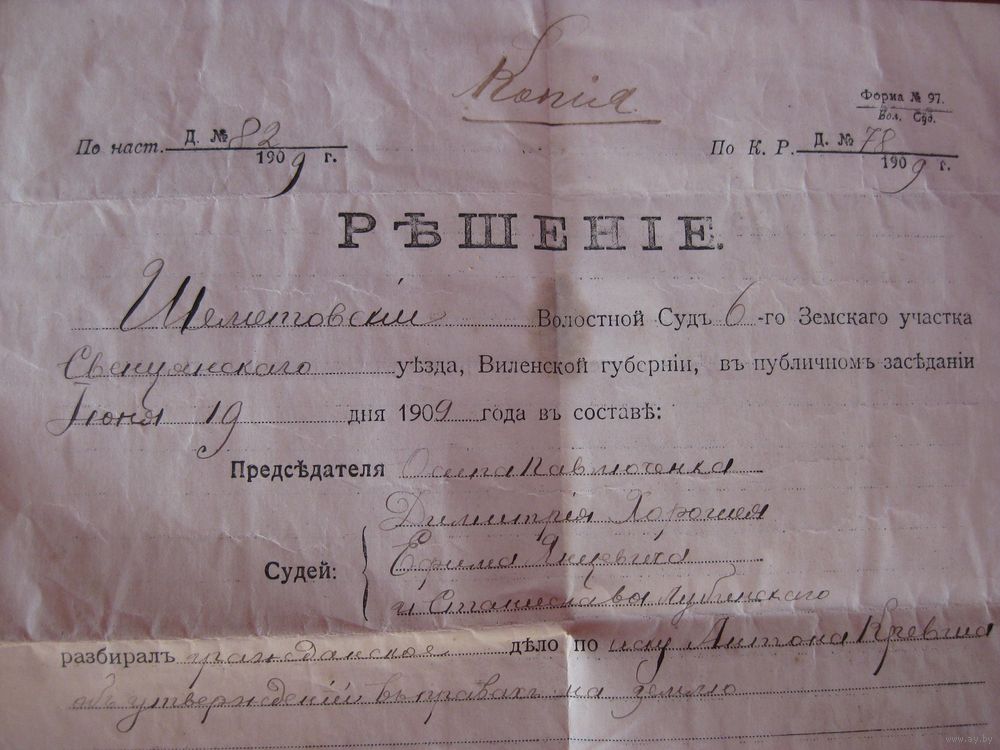 Копія
Форма № 97.
Вол. Суд.
По наст. Д. № 82
1909 г.
По К. Р. Д. № 78
1909 г.
РѢШЕНІЕ.
Шеметовскій Волостной Судъ 6-го Земскаго участка
Свенцянскаго уѣзда, Виленской губерніи, въ публичномъ засѣданіи
Іюня 19 дня 1909 года въ составѣ:
Предсѣдателя Осипа Павлюченка
Димитрія Хорошея
Судей: Ефима Яцевича
и Станислава Лубинскаго
разбиралъ гражданское дѣло по иску Антона Кревша
объ утвержденіи въ правахъ на землю
www.ay.by